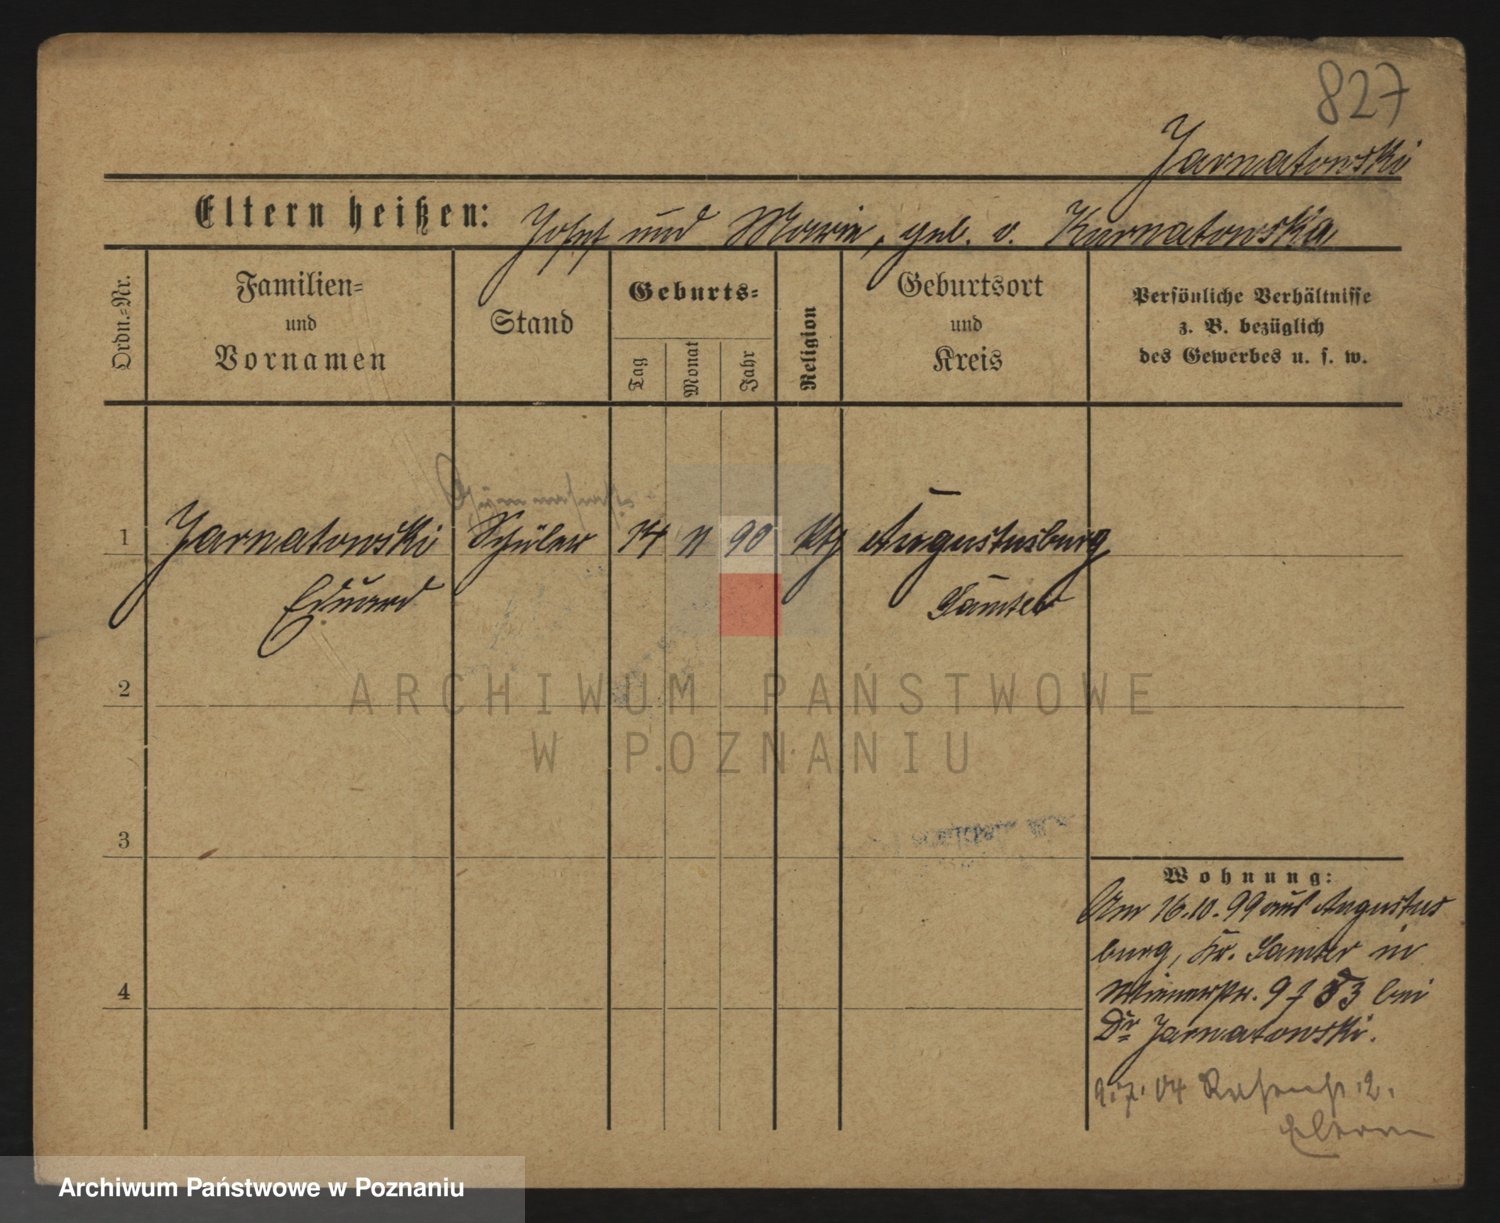 827
Jarnatowski
Eltern heißen: Josef und Marie, geb. v. Kurnatowska
Ordn.-Nr.
Familien-
und
Vornamen
Stand
Geburts-
Tag
Monat
Jahr
Religion
Geburtsort
und
Kreis
Persönliche Verhältnisse
z. B. bezüglich
des Gewerbes u. s. w.
1 Jarnatowski Schüler 14 11 90 kth Augustusburg
Eduard Samter
2
ARCHIWUM PAŃSTWOWE
W POZNANIU
3
Wohnung:
Am 16.10.99 aus Augustus
burg, Kr. Samter in
bei
4
Dr Jarnatowski.
9.7.04 2.
Eltern
Archiwum Państwowe w Poznaniu